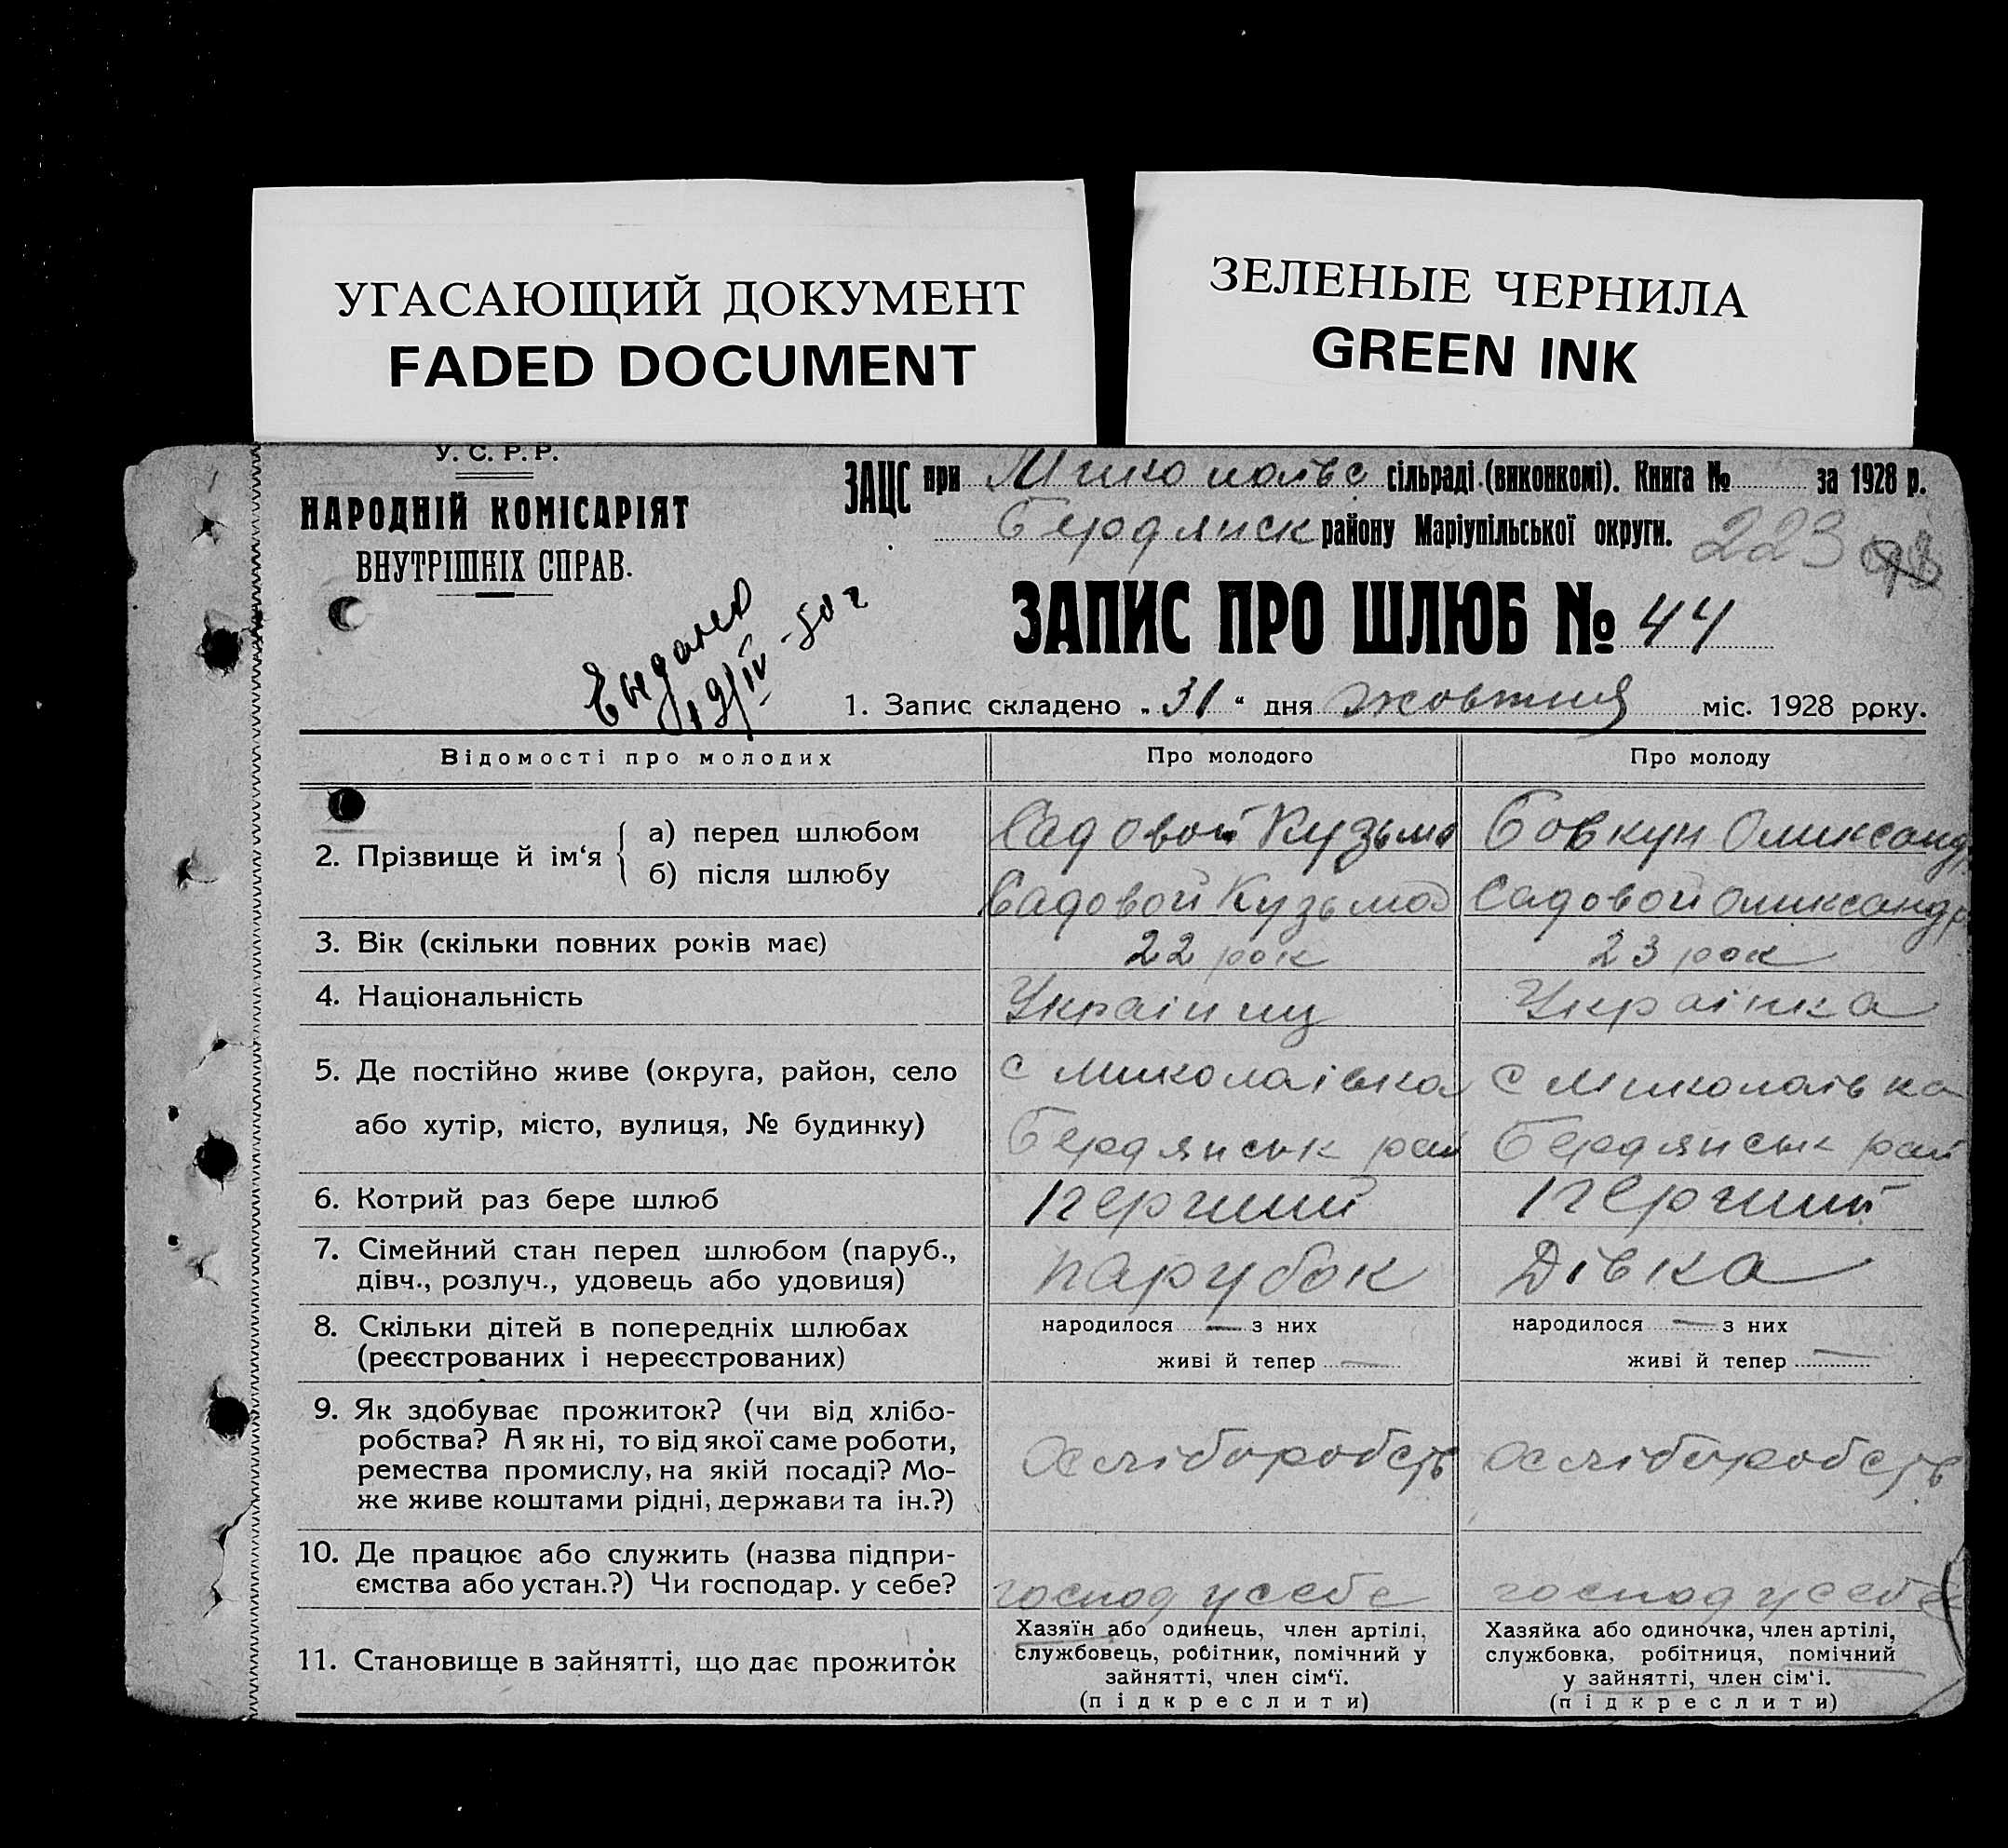 УГАСАЮЩИЙ ДОКУМЕНТ
FADED DOCUMENT
ЗЕЛЕНЫЕ ЧЕРНИЛА
GREEN INK
У. С. Р. Р.
НАРОДНІЙ КОМІСАРІЯТ
ВНУТРІШНІХ СПРАВ.
ЗАЦС при сільраді (виконкомі). Книга № за 1928 р.
Бердянск району Маріупільської округи.
223
19/IV-50 г
ЗАПИС ПРО ШЛЮБ № 44
1. Запис складено „31“ дня жовтня міс. 1928 року.
Відомості про молодих Про молодого Про молоду
2. Прізвище й ім‘я
а) перед шлюбом Садовой Кузьма Бовкун Олександ
б) після шлюбу Садовой Кузьма Садовой Олександр
3. Вік (скільки повних років має) 22 рок 23 рок
4. Національність Українец Українка
5. Де постійно живе (округа, район, село с Миколаівка с Миколаівка
або хутір, місто, вулиця, № будинку) Бердянськ рай Бердянськ рай
6. Котрий раз бере шлюб перший перший
7. Сімейний стан перед шлюбом (паруб.,
дівч., розлуч., удовець або удовиця) парубок Дівка
8. Скільки дітей в попередніх шлюбах народилося — з них народилося — з них
(реєстрованих і нереєстрованих) живі й тепер — живі й тепер —
9. Як здобуває прожиток? (чи від хлібо-
робства? А як ні, то від якої саме роботи,
ремества промислу, на якій посаді? Мо-
же живе коштами рідні, держави та ін.?)
хліборобств хліборобств
10. Де працює або служить (назва підпри-
ємства або устан.?) Чи господар. у себе? господ у себе господ у себе
11. Становище в зайнятті, що дає прожиток
Хазяїн або одинець, член артілі,
службовець, робітник, помічний у
зайнятті, член сім‘ї.
(підкреслити)
Хазяйка або одиночка, член артілі,
службовка, робітниця, помічний
у зайнятті, член сім‘і.
(підкреслити)